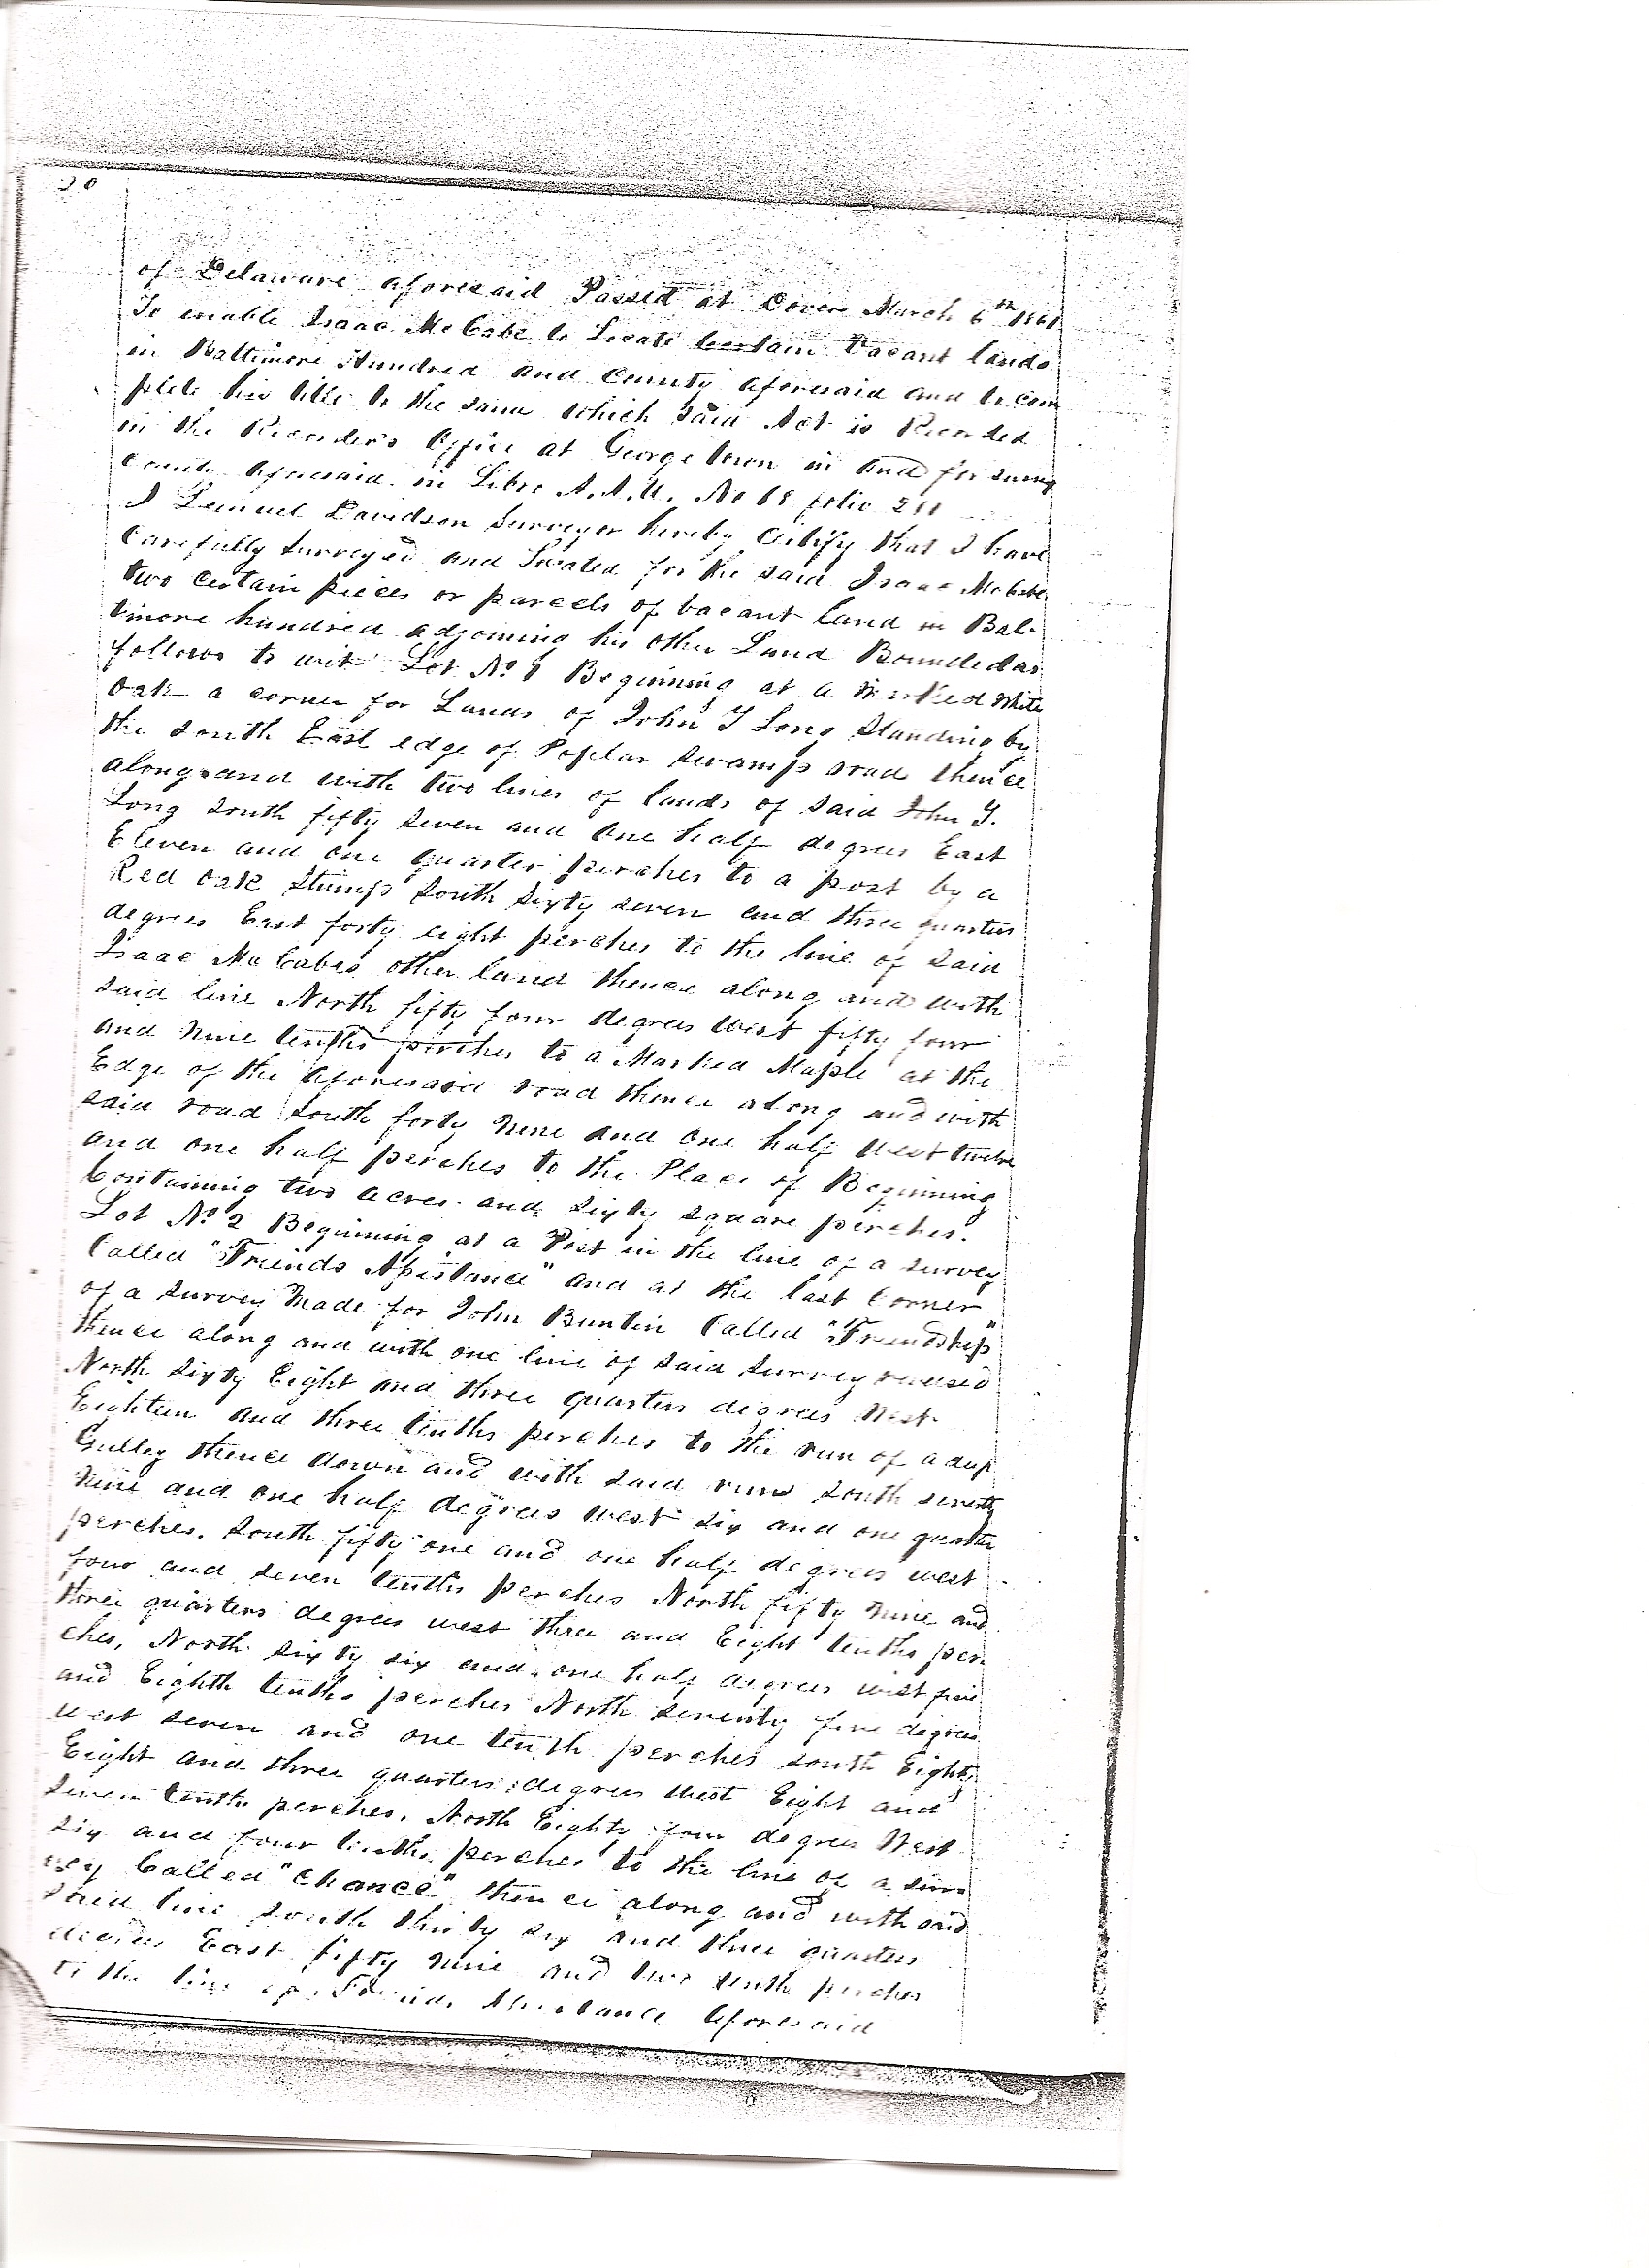 20
of Delaware aforesaid Passed at Dover March 6th 1861
To enable Isaac McCabe to Locate Certain Vacant lands
in Baltimore Hundred and County aforesaid and to com
plete his title to the same which said Act is Recorded
in the Recorder's Office at Georgetown in and for
County aforesaid in Libre A.A.U. No 68 folio 211
I Lemuel Davidson Surveyor hereby Certify that I have
Carefully Surveyed and Located for the said Isaac McCabe
two Certain pieces or parcels of vacant land in Bal-
timore hundred adjoining his other Land Bounded as
follows to wit Lot No 1 Beginning at a Marked White
Oak a corner for Lands of John T Long Standing by
the South East edge of Poplar Swamp road thence
along and with two lines of lands of said John T.
Long South fifty seven and one half degrees East
Eleven and one quarter perches to a post by a
Red Oak Stump South Sixty seven and three quarters
degrees East forty eight perches to the line of said
Isaac McCabes other land thence along and with
said line North fifty four degrees West fifty four
and nine tenths perches to a Marked Maple at the
Edge of the aforesaid road thence along and with
said road South forty nine and one half West twelve
and one half perches to the Place of Beginning
Containing two acres and Sixty square perches.
Lot No 2 Beginning at a Post in the line of a survey
Called "Friends Assistance" and at the last Corner
of a Survey Made for John Buntin Called "Friendship"
thence along and with one line of said Survey reversed
North Sixty Eight and three quarters degrees West
Eighteen and three tenths perches to the run of a deep
Gulley thence down and with said run South seventy
nine and one half degrees West Six and one quarter
perches. South fifty one and one half degrees west
four and seven tenths perches North fifty nine and
three quarters degrees west three and Eight tenths per-
ches, North Sixty six and one half degrees west five
and Eighth tenths perches North Seventy five degrees
west seven and one tenth perches South Eighty
Eight and three quarters degrees West Eight and
Seven tenths perches, North Eighty four degrees West
Six and four tenths perches to the line of a sur-
vey Called "Chance" thence along and with said
said line South thirty six and three quarters
degrees East fifty nine and two tenth perches
to the line of Friends Assistance aforesaid